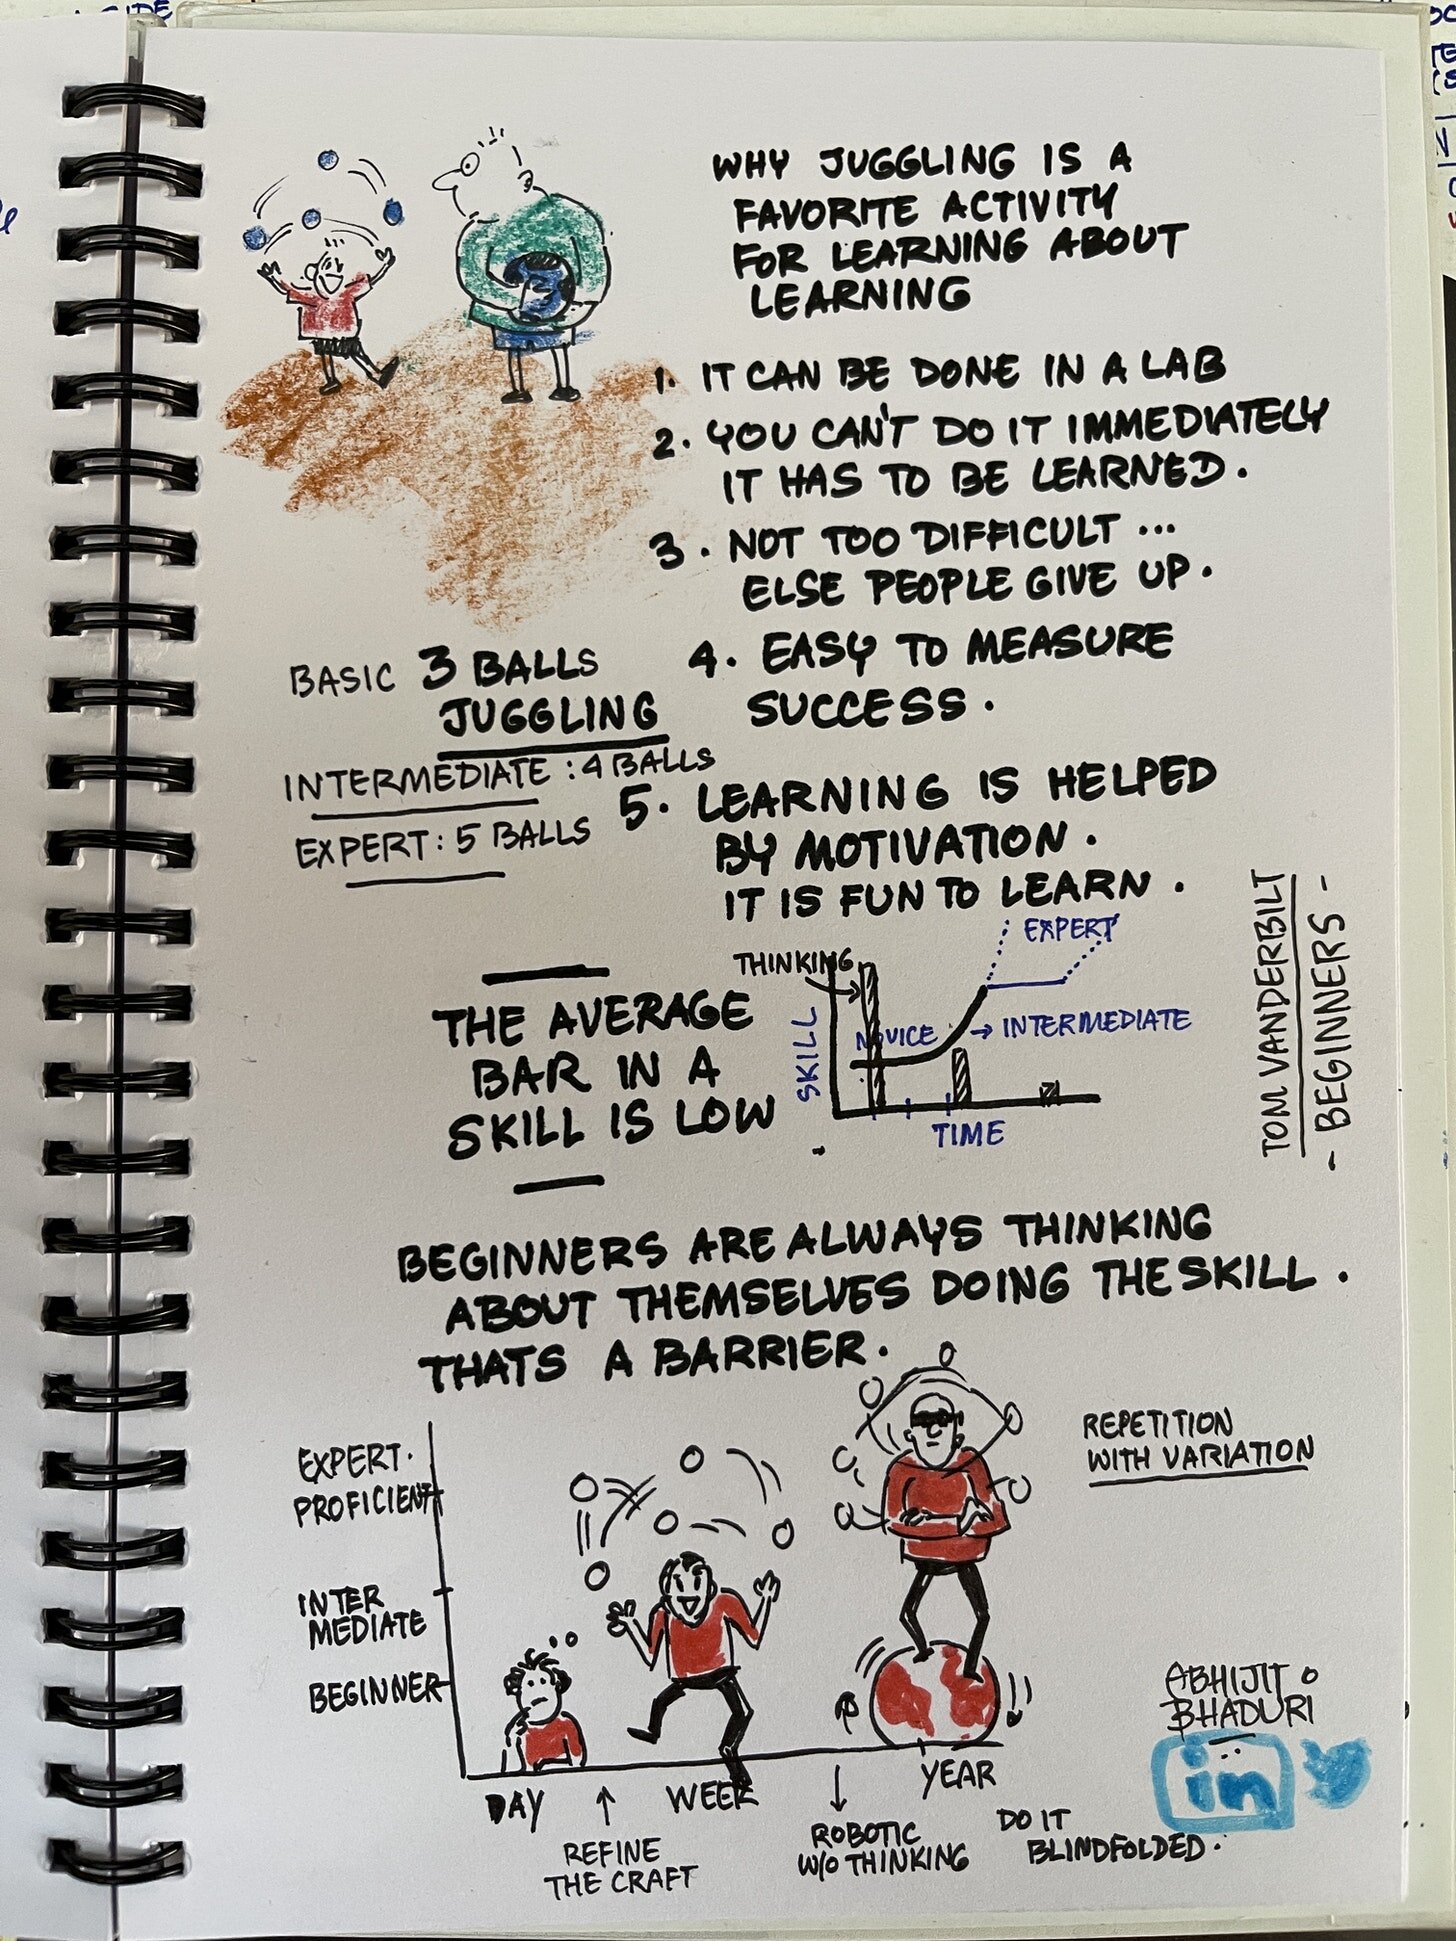 WHY JUGGLING IS A
FAVORITE ACTIVITY
FOR LEARNING ABOUT
LEARNING
1. IT CAN BE DONE IN A LAB
2. YOU CAN'T DO IT IMMEDIATELY
IT HAS TO BE LEARNED.
3. NOT TOO DIFFICULT ...
ELSE PEOPLE GIVE UP.
4. EASY TO MEASURE
SUCCESS.
BASIC 3 BALLS
JUGGLING
INTERMEDIATE : 4 BALLS
EXPERT : 5 BALLS
5. LEARNING IS HELPED
BY MOTIVATION.
IT IS FUN TO LEARN.
THE AVERAGE
BAR IN A
SKILL IS LOW
THINKING
EXPERT
NOVICE
→ INTERMEDIATE
SKILL
TIME
TOM VANDERBILT
- BEGINNERS -
BEGINNERS ARE ALWAYS THINKING
ABOUT THEMSELVES DOING THE SKILL.
THATS A BARRIER.
EXPERT.
PROFICIENT
INTER
MEDIATE
BEGINNER
REPETITION
WITH VARIATION
DAY
WEEK
YEAR
REFINE
THE CRAFT
ROBOTIC
W/O THINKING
DO IT
BLINDFOLDED.
ABHIJIT
BHADURI
in